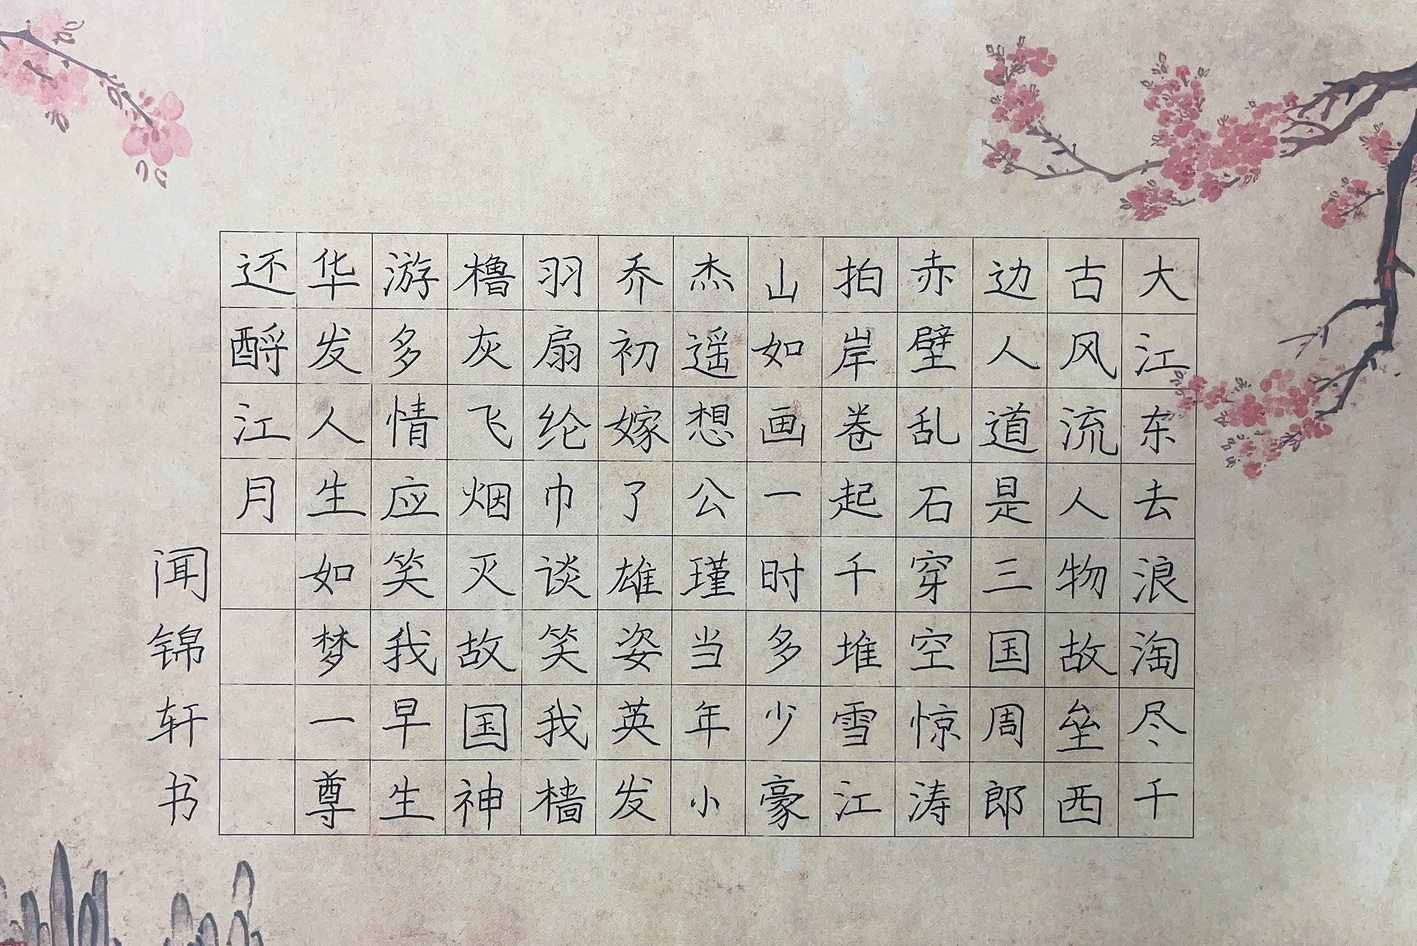 大江东去浪淘尽千
古风流人物故垒西
边人道是三国周郎
赤壁乱石穿空惊涛
拍岸卷起千堆雪江
山如画一时多少豪
杰遥想公瑾当年小
乔初嫁了雄姿英发
羽扇纶巾谈笑我樯
橹灰飞烟灭故国神
游多情应笑我早生
华发人生如梦一尊
还酹江月
闻锦轩书